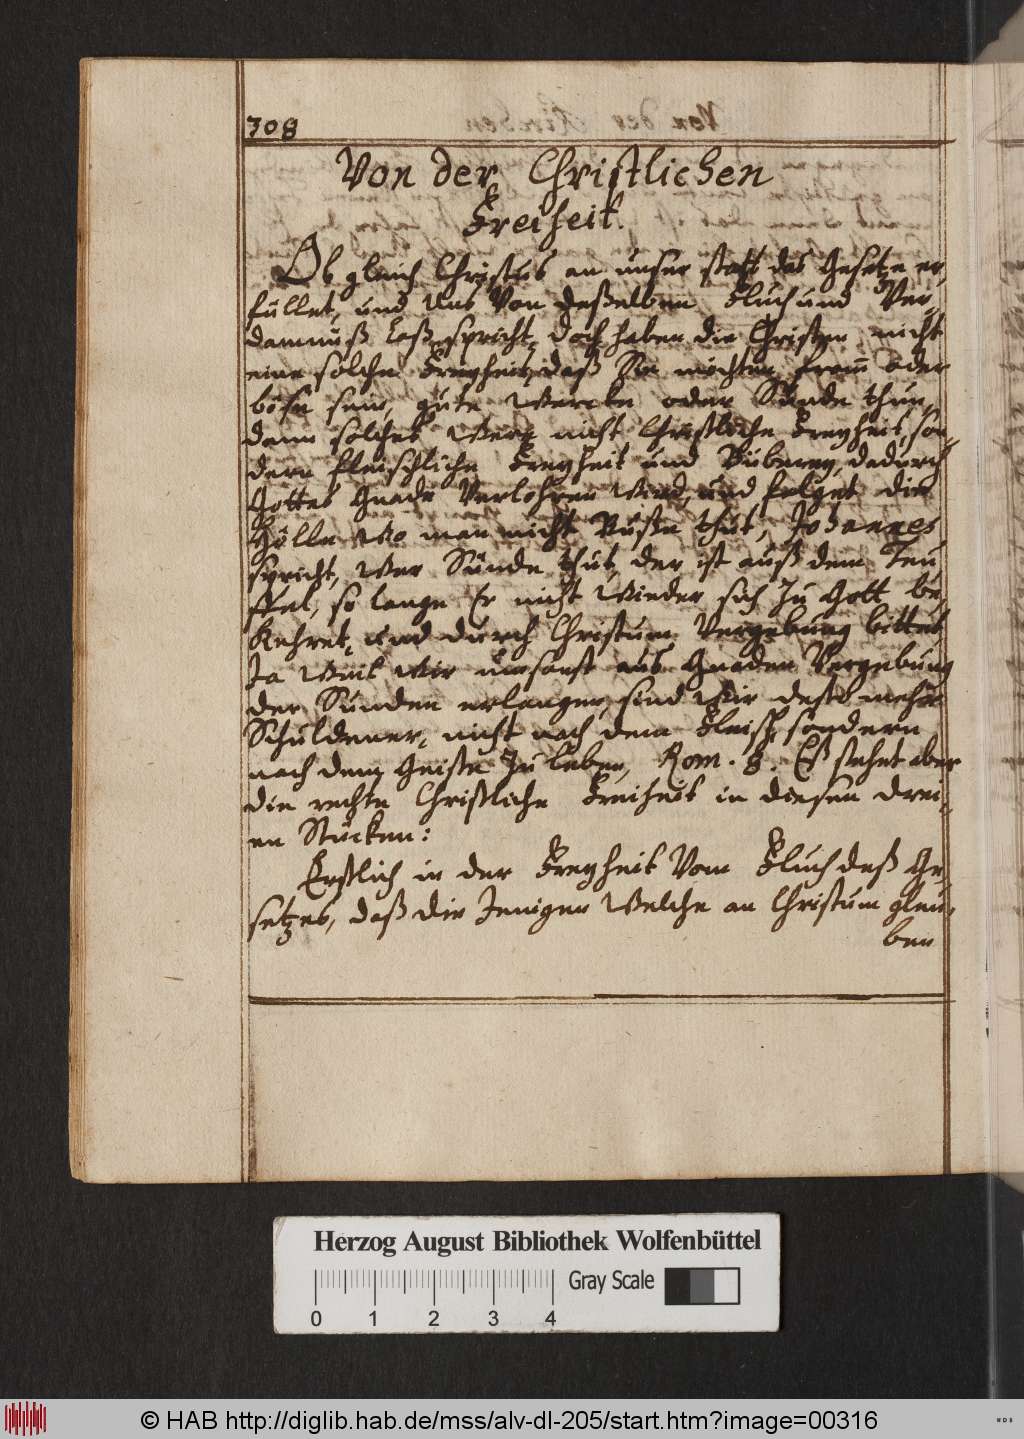 308
Von der Christlichen
Freiheit.
Ob gleich Christus an unser statt das Gesetze er,
füllet, und Uns Von deßelben Fluch und Ver,
damnuß loß spricht, doch haben die Christen nicht
eine solche Freyheit, daß Sie möchten from̄ oder
böse sein, gute Wercke oder Sünde thun,
dann solches Were nicht Christliche Freyheit, son,
dern fleischliche Freyheit und Büberey, dadurch
Gottes Gnade Verlohren Wird, und folget die
Hölle Wo man nicht Buße thut, Johannes
spricht, Wer Sünde thut, der ist auß dem Teu
ffel, so lange Er nicht Wieder sich Zu Gott be,
Kehret, und durch Christum Vergebung bittet
Ja Weil Wir umsonst aus Gnaden Vergebung
der Sünden erlangen, sind Wir desto mehr
Schuldener, nicht nach dem Fleisch, sondern
nach dem Geiste Zu leben, Rom. 8. Eß stehet aber
die rechte Christliche Freiheit in diesen drei,
en Stücken:
Erstlich in der Freyheit Vom Fluch deß Ge,
setzes, daß die Jenigen Welche an Christum gleu,
ben
Herzog August Bibliothek Wolfenbüttel
Gray Scale
0 1 2 3 4
© HAB http://diglib.hab.de/mss/alv-dl-205/start.htm?image=00316